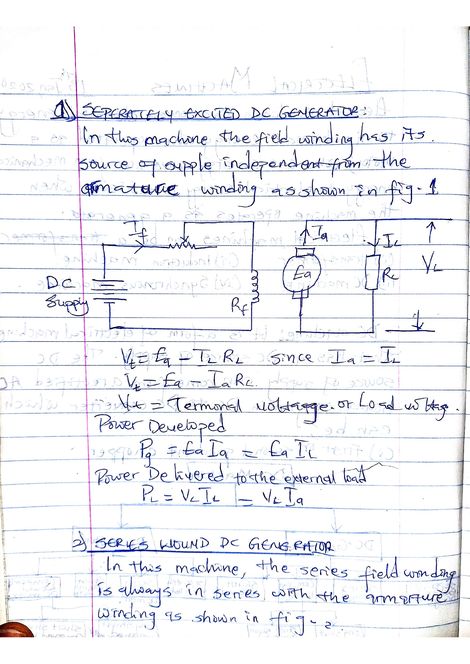 1) SEPERATELY EXCITED DC GENERATOR:
In this machine the field winding has its
source of supple independent from the
armature winding as shown in fig. 1
If
Ia
IL
DC
Supply
Rf
Ea
RL
VL
Vt = Ea - IL RL since Ia = IL
Vt = Ea - Ia RL
Vt = Terminal voltagge or Load voltage.
Power Developed
Pg = Ea Ia = Ea IL
Power Delivered to the external load
PL = VL IL = VL Ia
2) SERIES WOUND DC GENERATOR
In this machine, the series field winding
is always in series with the armature
winding as shown in fig - 2